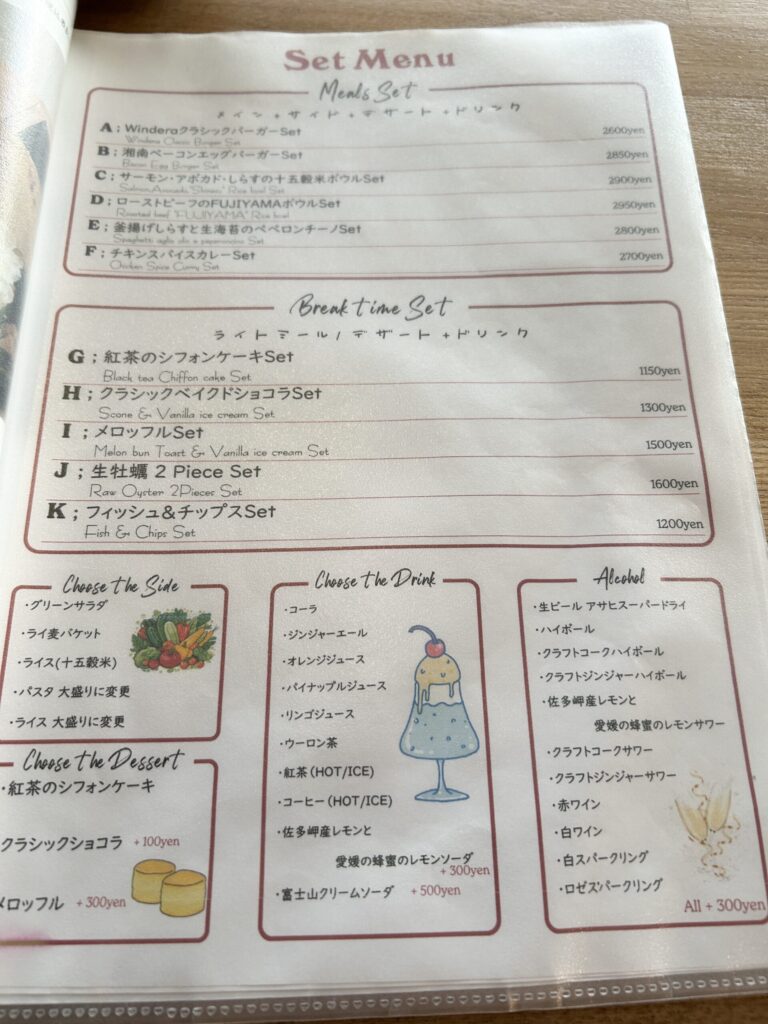 Set Menu
Meals Set
メイン + サイド + デザート + ドリンク
A ; Winderaクラシックバーガー Set
Windera Classic Burger Set
2600yen
B ; 湘南ベーコンエッグバーガーSet
Bacon Egg Burger Set
2850yen
C ; サーモン・アボカド・しらすの十五穀米ボウルSet
Salmon,Avocado,"Shirasu" Rice bowl Set
2900yen
D ; ローストビーフのFUJIYAMAボウルSet
Roasted beef "FUJIYAMA" Rice bowl
2950yen
E ; 釜揚げしらすと生海苔のペペロンチーノSet
Spaghetti aglio olio e peperoncino Set
2800yen
F ; チキンスパイスカレーSet
Chicken Spice Curry Set
2700yen
Break time Set
ライトミール / デザート + ドリンク
G ; 紅茶のシフォンケーキSet
Black tea Chiffon cake Set
1150yen
H ; クラシックベイクドショコラSet
Scone & Vanilla ice cream Set
1300yen
I ; メロッフルSet
Melon bun Toast & Vanilla ice cream Set
1500yen
J ; 生牡蠣 2 Piece Set
Raw Oyster 2Pieces Set
1600yen
K ; フィッシュ&チップスSet
Fish & Chips Set
1200yen
Choose the Side
・グリーンサラダ
・ライ麦バケット
・ライス(十五穀米)
・パスタ 大盛りに変更
・ライス 大盛りに変更
Choose the Dessert
・紅茶のシフォンケーキ
クラシックショコラ + 100yen
メロッフル + 300yen
Choose the Drink
・コーラ
・ジンジャーエール
・オレンジジュース
・パイナップルジュース
・リンゴジュース
・ウーロン茶
・紅茶(HOT/ICE)
・コーヒー(HOT/ICE)
・佐多岬産レモンと
愛媛の蜂蜜のレモンソーダ
+ 300yen
・富士山クリームソーダ + 500yen
Alcohol
・生ビール アサヒスーパードライ
・ハイボール
・クラフトコークハイボール
・クラフトジンジャーハイボール
・佐多岬産レモンと
愛媛の蜂蜜のレモンサワー
・クラフトコークサワー
・クラフトジンジャーサワー
・赤ワイン
・白ワイン
・白スパークリング
・ロゼスパークリング
All + 300yen